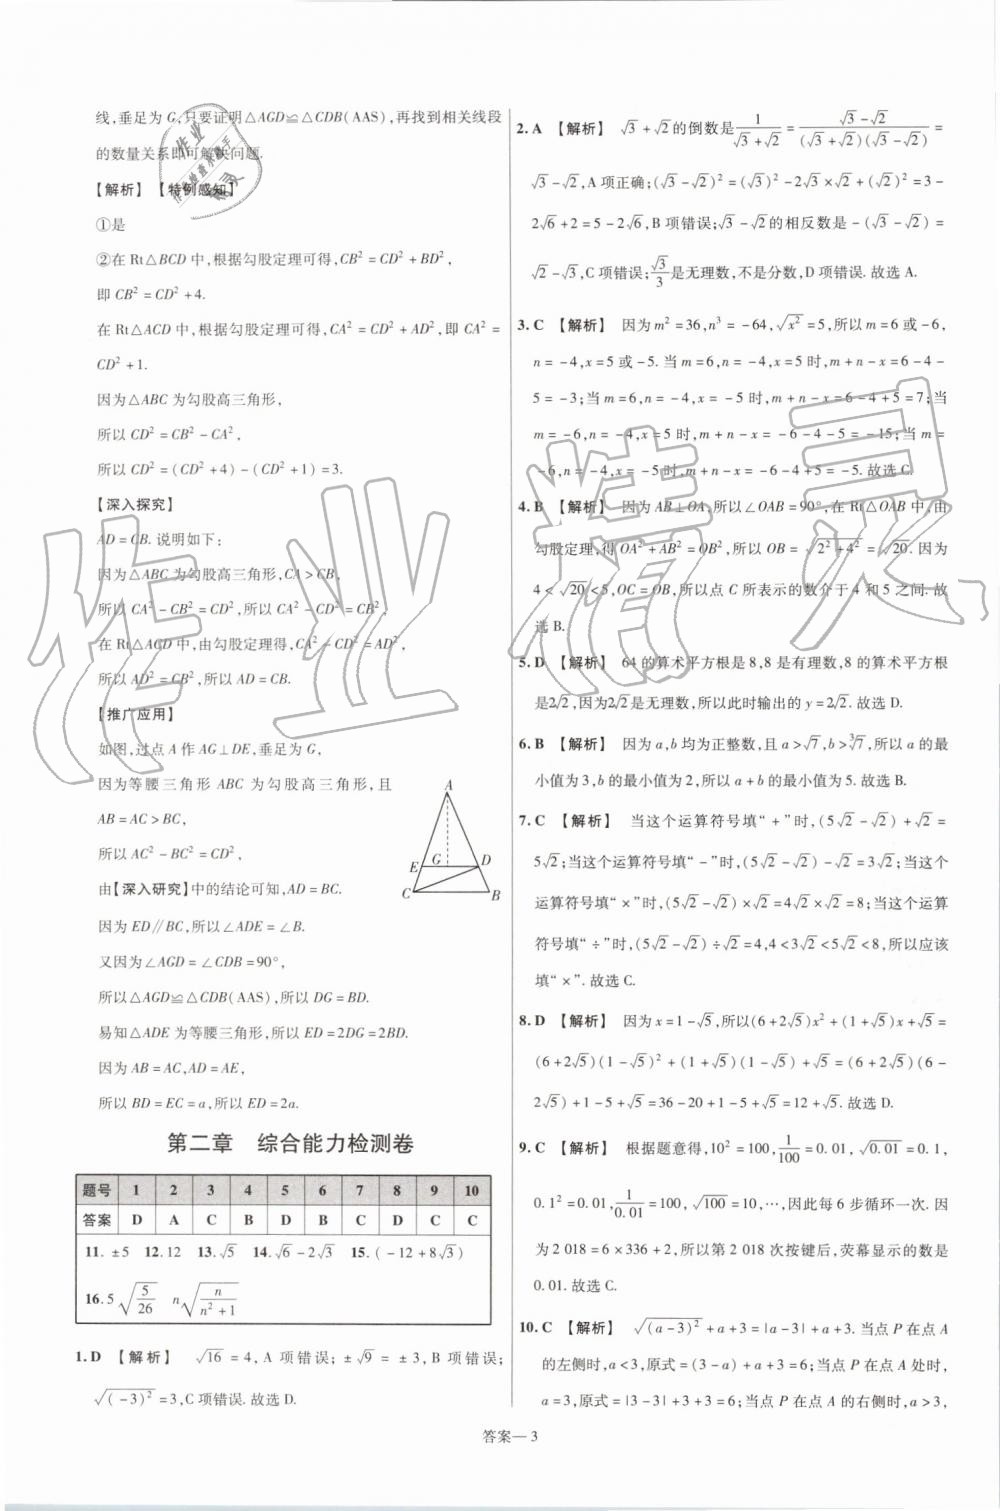 线,垂足为 G,只要证明△AGD≌△CDB(AAS),再找到相关线段
的数量关系即可解决问题.
【解析】 【特例感知】
①是
②在 Rt△BCD 中,根据勾股定理可得,CB²=CD²+BD²,
即 CB²=CD²+4.
在 Rt△ACD 中,根据勾股定理可得,CA²=CD²+AD²,即 CA²=
CD²+1.
因为△ABC 为勾股高三角形,
所以 CD²=CB²-CA²,
所以 CD²=(CD²+4)-(CD²+1)=3.
【深入探究】
AD=CB. 说明如下:
因为△ABC 为勾股高三角形,CA>CB,
所以 CA²-CB²=CD²,所以 CA²-CD²=CB².
在 Rt△ACD 中,由勾股定理得,CA²-CD²=AD²,
所以 AD²=CB²,所以 AD=CB.
【推广应用】
如图,过点 A 作 AG⊥DE,垂足为 G,
因为等腰三角形 ABC 为勾股高三角形,且
AB=AC>BC,
所以 AC²-BC²=CD²,
由【深入研究】中的结论可知,AD=BC.
因为 ED∥BC,所以∠ADE=∠B.
又因为∠AGD=∠CDB=90°,
所以△AGD≌△CDB(AAS),所以 DG=BD.
易知△ADE 为等腰三角形,所以 ED=2DG=2BD.
因为 AB=AC,AD=AE,
所以 BD=EC=a,所以 ED=2a.
A
E G D
C B
第二章 综合能力检测卷
题号 1 2 3 4 5 6 7 8 9 10
答案 D A C B D B C D C C
11. ±5 12. 12 13. √5 14. √6-2√3 15. (-12+8√3)
16. 5√(5/26) n√(n/(n²+1))
1. D 【解析】 √16=4,A 项错误;±√9=±3,B 项错误;
√((-3)²)=3,C 项错误. 故选 D.
2. A 【解析】 √3+√2的倒数是1/(√3+√2)=(√3-√2)/((√3+√2)(√3-√2))=
√3-√2,A 项正确;(√3-√2)²=(√3)²-2√3×√2+(√2)²=3-
2√6+2=5-2√6,B 项错误;√3-√2的相反数是-(√3-√2)=
√2-√3,C 项错误;√3/3是无理数,不是分数,D 项错误. 故选 A.
3. C 【解析】 因为 m²=36,n³=-64,√(x²)=5,所以 m=6 或-6,
n=-4,x=5 或-5. 当 m=6,n=-4,x=5 时,m+n-x=6-4-
5=-3;当 m=6,n=-4,x=-5 时,m+n-x=6-4+5=7;当
m=-6,n=-4,x=5 时,m+n-x=-6-4-5=-15;当 m=
-6,n=-4,x=-5 时,m+n-x=-6-4+5=-5. 故选 C.
4. B 【解析】 因为 AB⊥OA,所以∠OAB=90°,在 Rt△OAB 中,由
勾股定理,得 OA²+AB²=OB²,所以 OB=√(2²+4²)=√20. 因为
4<√20<5,OC=OB,所以点 C 所表示的数介于 4 和 5 之间. 故
选 B.
5. D 【解析】 64 的算术平方根是 8,8 是有理数,8 的算术平方根
是2√2,因为2√2是无理数,所以此时输出的 y=2√2. 故选 D.
6. B 【解析】 因为 a,b 均为正整数,且 a>√7,b>∛7,所以 a 的最
小值为 3,b 的最小值为 2,所以 a+b 的最小值为 5. 故选 B.
7. C 【解析】 当这个运算符号填“+”时,(5√2-√2)+√2=
5√2;当这个运算符号填“-”时,(5√2-√2)-√2=3√2;当这个
运算符号填“×”时,(5√2-√2)×√2=4√2×√2=8;当这个运算
符号填“÷”时,(5√2-√2)÷√2=4,4<3√2<5√2<8,所以应该
填“×”. 故选 C.
8. D 【解析】 因为 x=1-√5,所以(6+2√5)x²+(1+√5)x+√5=
(6+2√5)(1-√5)²+(1+√5)(1-√5)+√5=(6+2√5)(6-
2√5)+1-5+√5=36-20+1-5+√5=12+√5. 故选 D.
9. C 【解析】 根据题意得,10²=100,1/100=0.01,√0.01=0.1,
0.1²=0.01,1/0.01=100,√100=10,…,因此每 6 步循环一次. 因
为 2 018=6×336+2,所以第 2 018 次按键后,荧幕显示的数是
0.01. 故选 C.
10. C 【解析】 √((a-3)²)+a+3=|a-3|+a+3. 当点 P 在点 A
的左侧时,a<3,原式=(3-a)+a+3=6;当点 P 在点 A 处时,
a=3,原式=|3-3|+3+3=6;当点 P 在点 A 的右侧时,a>3,
答案—3
作业精灵